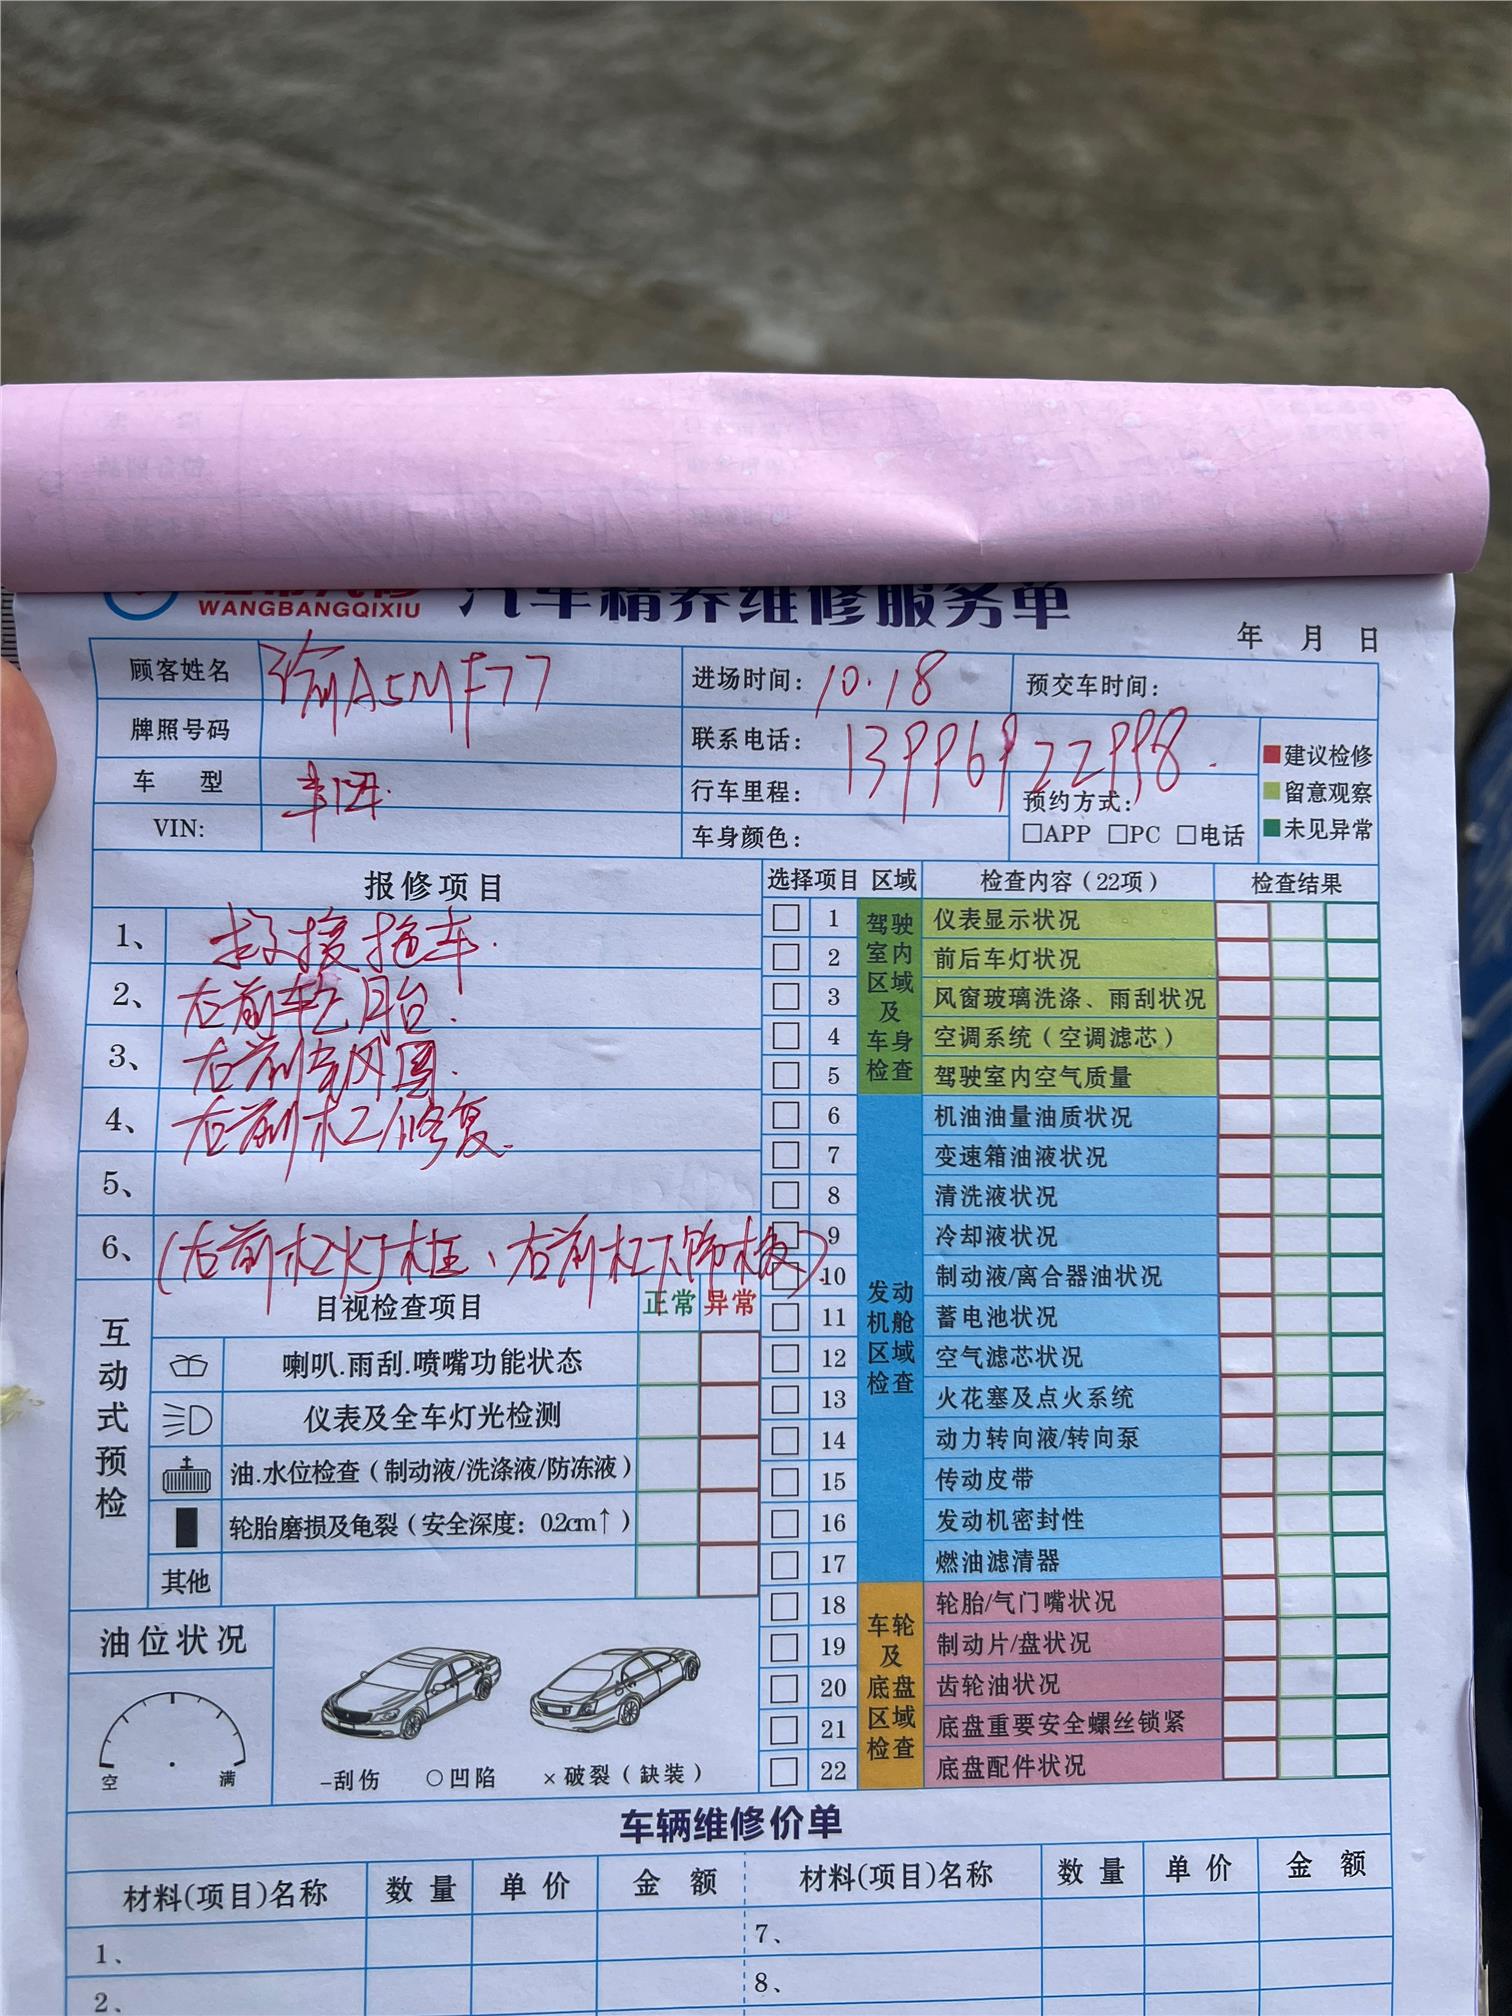 WANGBANGQIXIU
汽车精养维修服务单
年 月 日
顾客姓名 渝A5MF77 进场时间: 10.18 预交车时间:
牌照号码 联系电话: 13996922998.
车 型 行车里程: 预约方式:
VIN: 车身颜色: □APP □PC □电话
建议检修
留意观察
未见异常
报修项目
1、 救援拖车.
2、 右前轮胎.
3、 右前钢圈.
4、 右前杠修复.
5、
6、 (右前杠灯框、右前杠下饰板).
互动式预检
目视检查项目 正常 异常
喇叭.雨刮.喷嘴功能状态
仪表及全车灯光检测
油.水位检查(制动液/洗涤液/防冻液)
轮胎磨损及龟裂(安全深度: 0.2cm↑)
其他
油位状况
空 满
-刮伤 ○凹陷 ×破裂(缺装)
选择项目 区域 检查内容(22项) 检查结果
驾驶室内区域及车身检查
1 仪表显示状况
2 前后车灯状况
3 风窗玻璃洗涤、雨刮状况
4 空调系统(空调滤芯)
5 驾驶室内空气质量
发动机舱区域检查
6 机油油量油质状况
7 变速箱油液状况
8 清洗液状况
9 冷却液状况
10 制动液/离合器油状况
11 蓄电池状况
12 空气滤芯状况
13 火花塞及点火系统
14 动力转向液/转向泵
15 传动皮带
16 发动机密封性
17 燃油滤清器
车轮及底盘区域检查
18 轮胎/气门嘴状况
19 制动片/盘状况
20 齿轮油状况
21 底盘重要安全螺丝锁紧
22 底盘配件状况
车辆维修价单
材料(项目)名称 数量 单价 金额 材料(项目)名称 数量 单价 金额
1、 7、
2、 8、